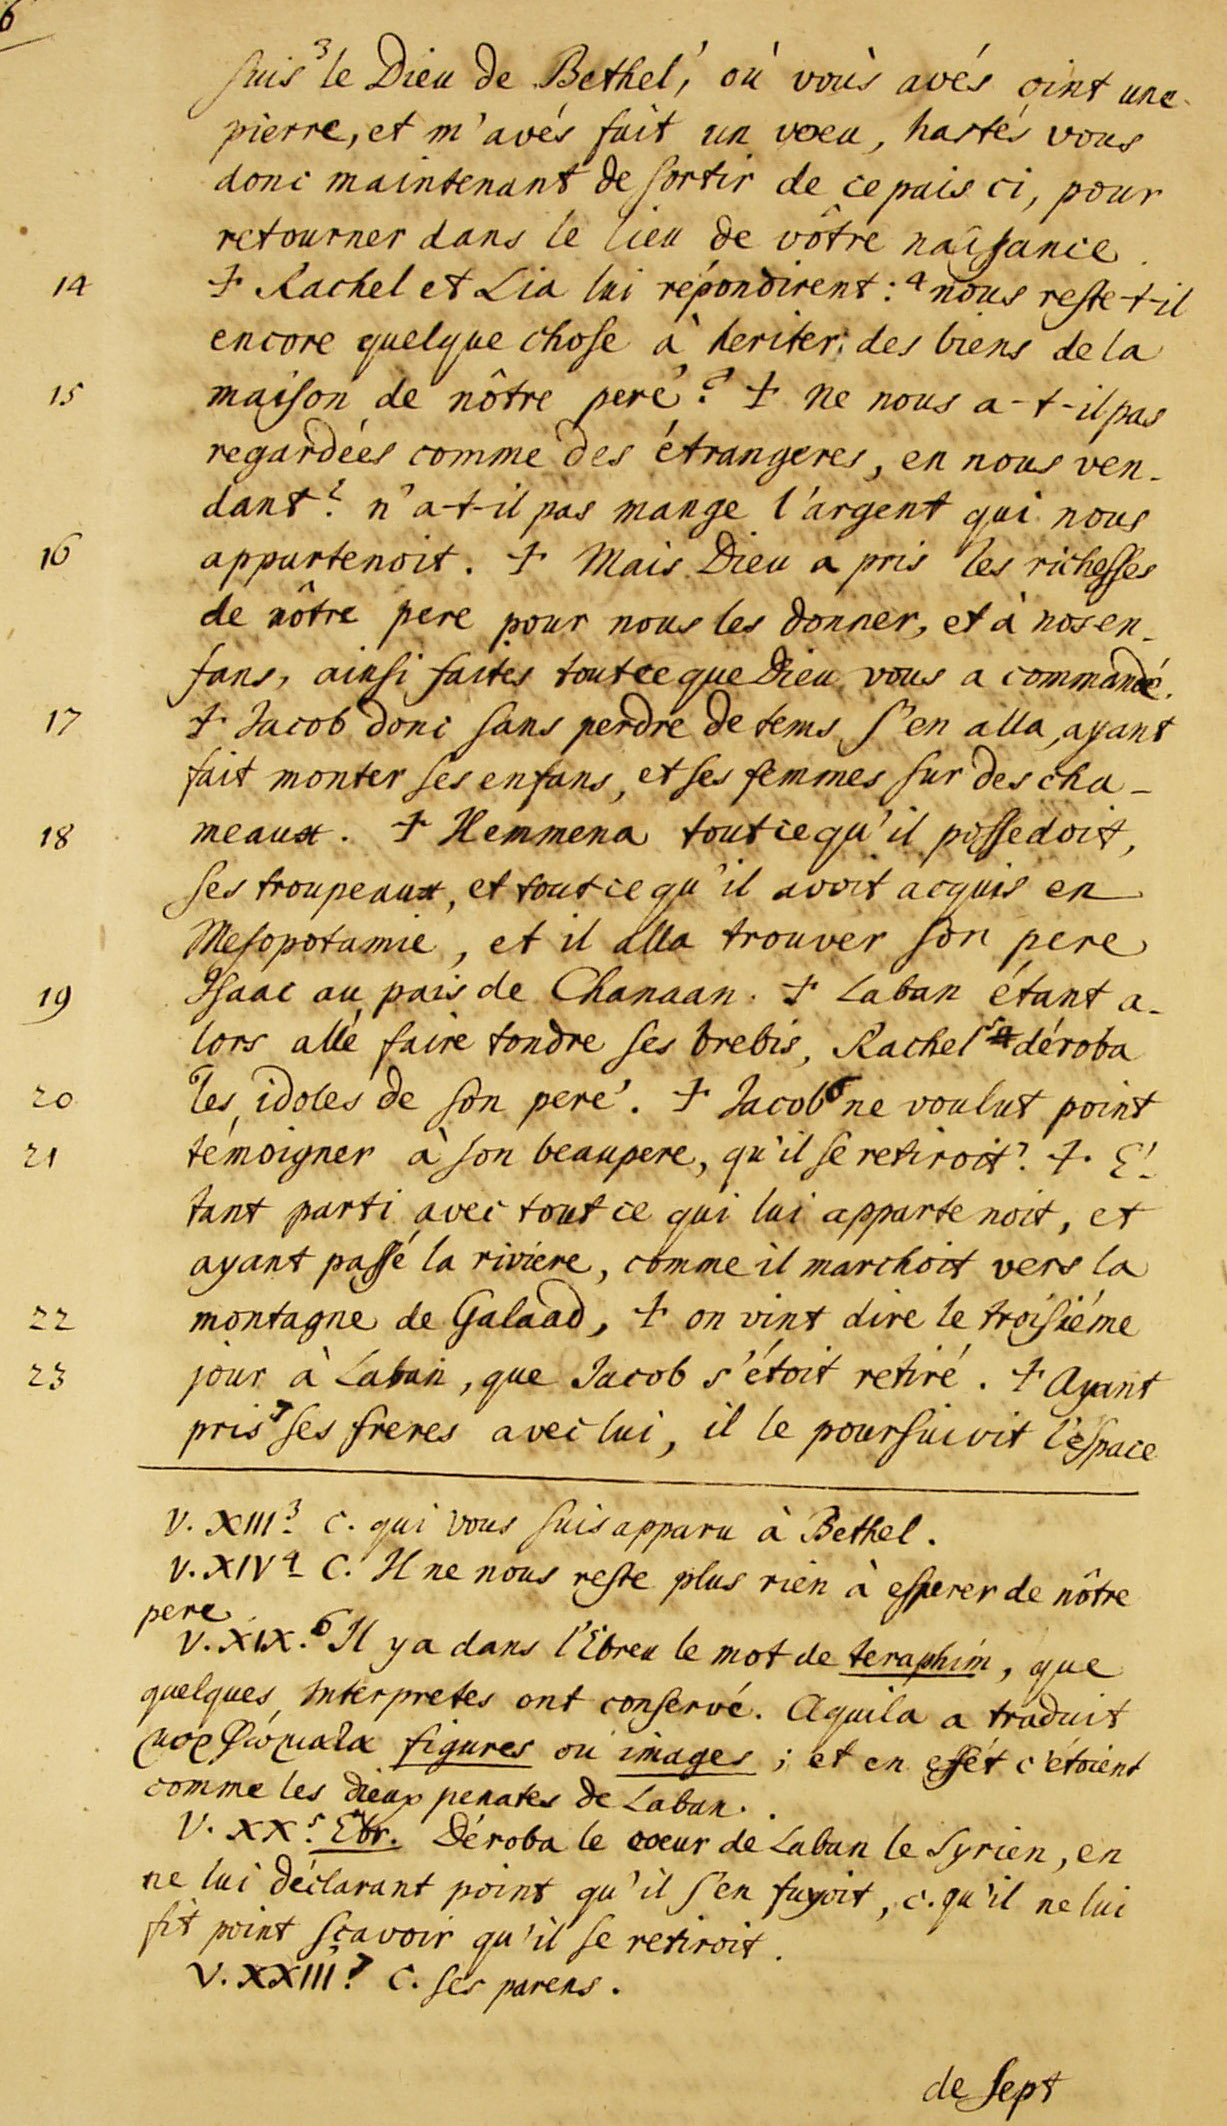 6
suis ³ le Dieu de Bethel, où vous avés oint une
pierre, et m'avés fait un voeu, hastés vous
donc maintenant de sortir de ce pais ci, pour
retourner dans le lieu de vôtre naissance.
14 + Rachel et Lia lui répondirent : ⁴ nous reste-t-il
encore quelque chose à heriter des biens de la
15 maison de nôtre pere ? + Ne nous a-t-il pas
regardées comme des étrangeres, en nous ven-
dant ? n'a-t-il pas mange l'argent qui nous
16 appartenoit. + Mais Dieu a pris les richesses
de nôtre pere pour nous les donner, et à nos en-
fans, ainsi faites tout ce que Dieu vous a commandé.
17 + Jacob donc sans perdre de tems s'en alla, ayant
fait monter ses enfans, et ses femmes sur des cha-
18 meaux. + Il emmena tout ce qu'il possedoit,
ses troupeaux, et tout ce qu'il avoit acquis en
Mesopotamie, et il alla trouver son pere
19 Isaac au pais de Chanaan. + Laban étant a-
lors allé faire tondre ses brebis, Rachel ⁵ déroba
20 les idoles de son pere. + Jacob ⁶ ne voulut point
21 témoigner à son beaupere, qu'il se retiroit. + É-
tant parti avec tout ce qui lui appartenoit, et
ayant passé la riviere, comme il marchoit vers la
22 montagne de Galaad, + on vint dire le troisiéme
23 jour à Laban, que Jacob s'étoit retiré. + Ayant
pris ⁷ ses freres avec lui, il le poursuivit l'espace
V. XIII ³. C. qui vous suis apparu à Bethel.
V. XIV ⁴ C. Il ne nous reste plus rien à esperer de nôtre
pere
V. XIX. ⁶ Il y a dans l'Ebreu le mot de teraphim, que
quelques Interpretes ont conservé. Aquila a traduit
μορφώματα figures ou images ; et en effét c'étoient
comme les dieux penates de Laban.
V. XX ⁵. Ebr. Déroba le coeur de Laban le Syrien, en
ne lui déclarant point qu'il s'en fuyoit, c. qu'il ne lui
fit point sçavoir qu'il se retiroit.
V. XXIII. ⁷ C. ses parens.
de sept